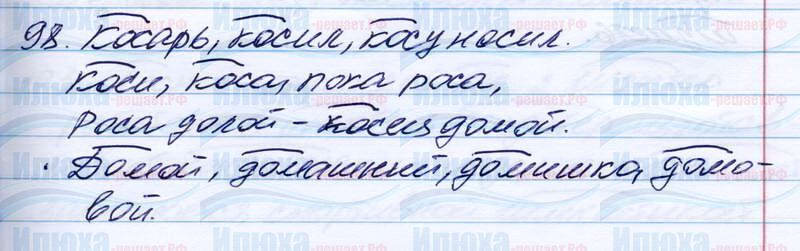 98. Косарь, косил, косу носил.
Коси, коса, пока роса,
Роса долой – косец домой.
· Домой, домашний, домишко, домо-
вой.